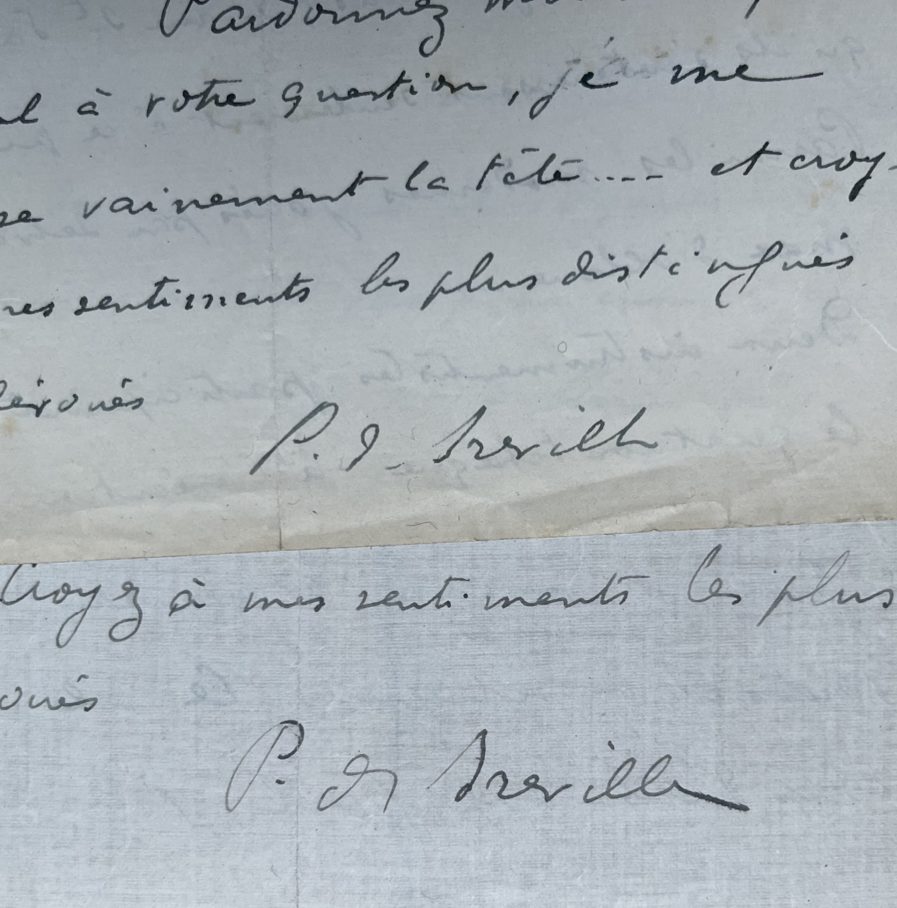 Pardonnez
à votre question, je me
vainement la tête.... et croy-
sentiments les plus distingués
P. d. Breville
Croyez à mes sentiments les plus
P. de Breville